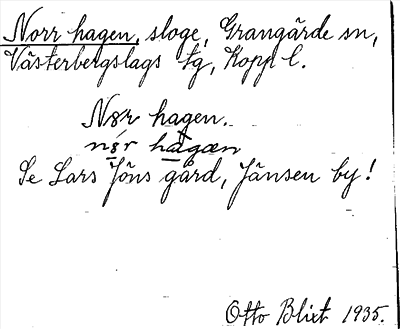 Norr hagen, sloge, Grangärde sn,
Västerbergslags tg, Koppl l.
Nør hagen.
nǿr hagæn
Se Lars Jöns gård, Jänsen by!
Otto Blixt 1935.